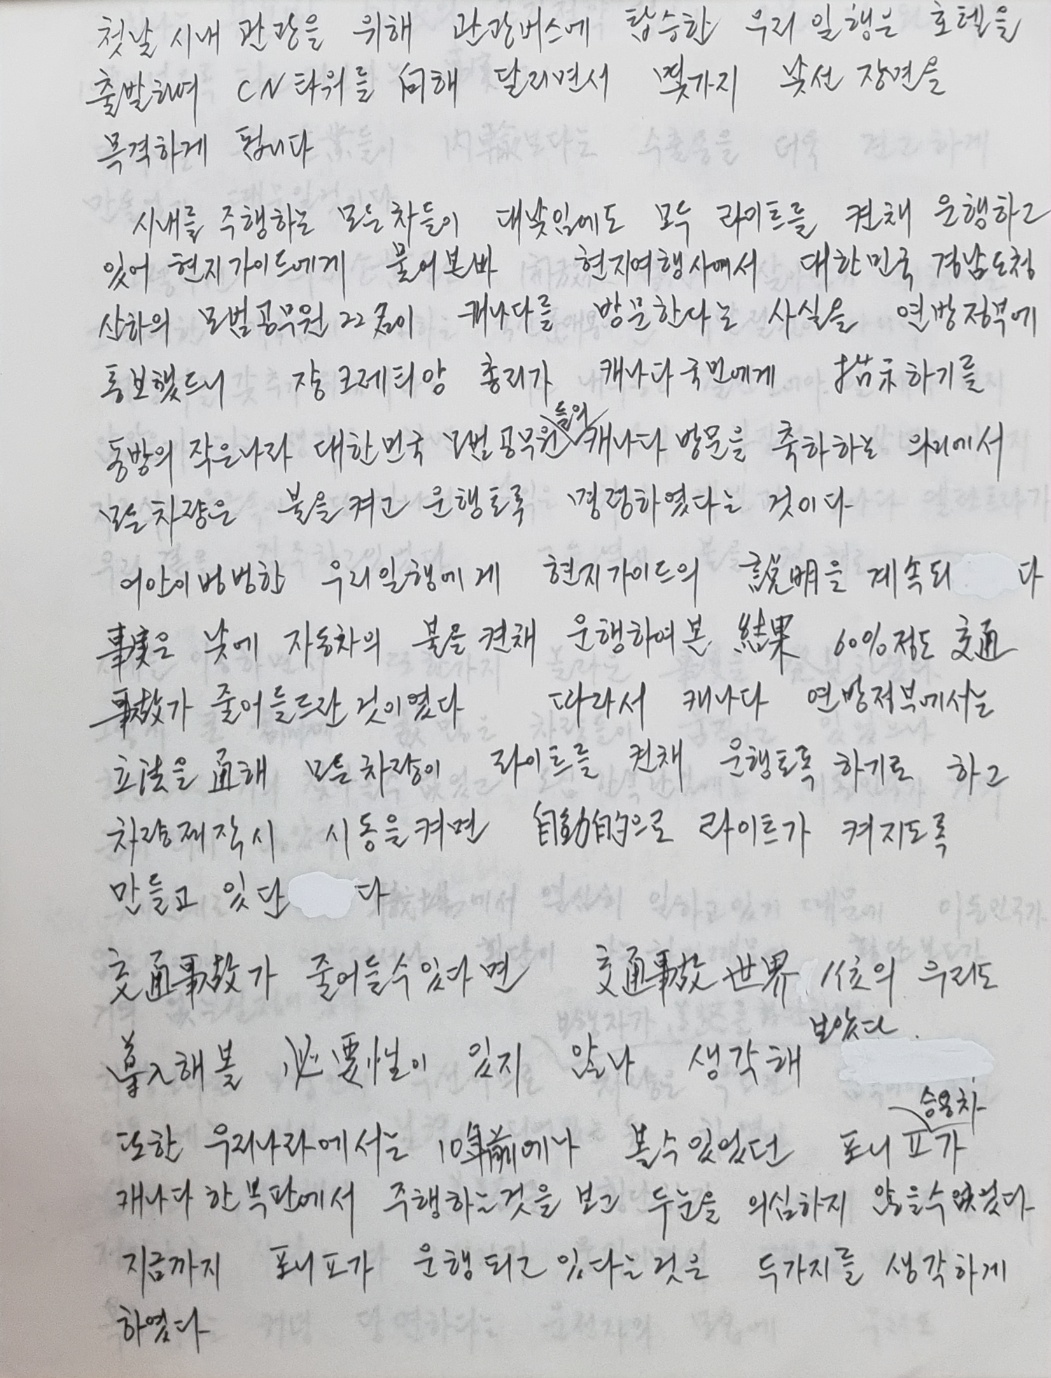 첫날 시내 관광을 위해 관광버스에 탑승한 우리 일행은 호텔을
출발하여 CN타워를 向해 달리면서 몇가지 낯선 장면을
목격하게 됩니다
시내를 주행하는 모든차들이 대낮임에도 모두 라이트를 켠채 운행하고
있어 현지가이드에게 물어본바 현지여행사에서 대한민국 경남도청
산하의 모범공무원 22名이 캐나다를 방문한다는 사실을 연방정부에
통보했드니 장 크레티앙 총리가 캐나다 국민에게 指示하기를
동방의 작은나라 대한민국 모범공무원들의 캐나다 방문을 축하하는 의미에서
모든차량은 불을 켜고 운행토록 결정하였다는 것이다
어안이벙벙한 우리일행에게 현지가이드의 說明을 계속되 다
事実은 낮에 자동차의 불을 켠채 운행하여본 結果 60%정도 交通
事故가 줄어들드란 것이였다 따라서 캐나다 연방정부에서는
立法을 通해 모든차량이 라이트를 켠채 운행토록 하기로 하고
차량제작시 시동을켜면 自動的으로 라이트가 켜지도록
만들고 있단 다
交通事故가 줄어들수있다면 交通事故 世界 1位의 우리도
導入해볼 必要性이 있지 않나 생각해 보았다
또한 우리나라에서는 10年前에나 볼수있었던 포니 승용차가
캐나다 한복판에서 주행하는것을 보고 두눈을 의심하지 않을수없었다
지금까지 포니가 운행되고 있다는것은 두가지를 생각하게
하였다